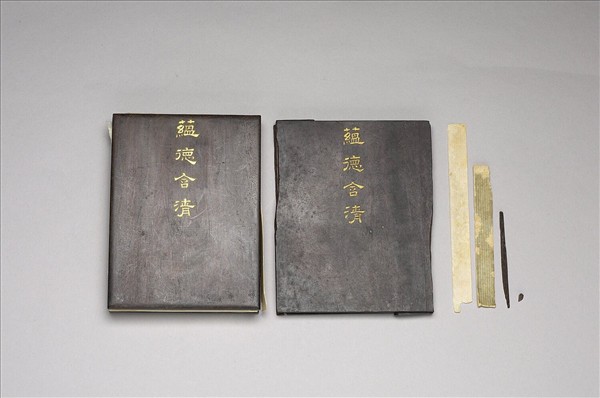 蘊德含清
蘊德含清